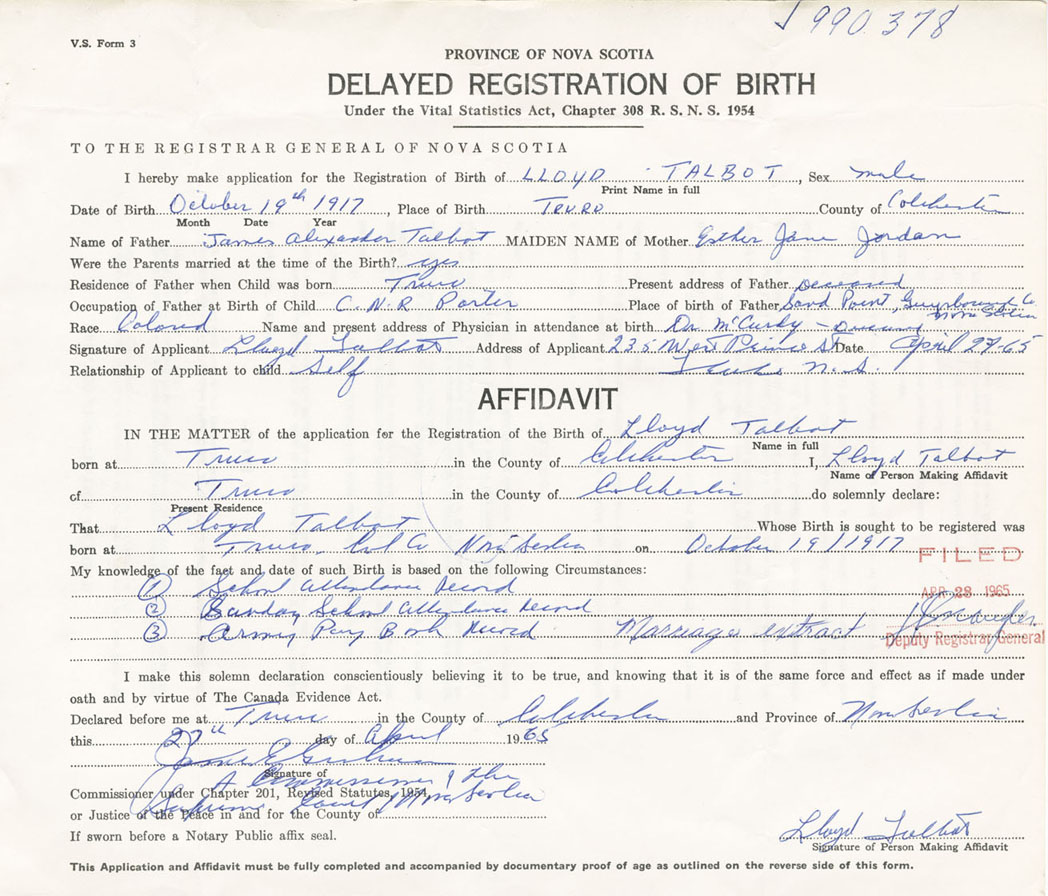 990378
V.S. Form 3
PROVINCE OF NOVA SCOTIA
DELAYED REGISTRATION OF BIRTH
Under the Vital Statistics Act, Chapter 308 R. S. N. S. 1954
TO THE REGISTRAR GENERAL OF NOVA SCOTIA
I hereby make application for the Registration of Birth of LLOYD TALBOT, Sex male
Print Name in full
Date of Birth October 19th 1917, Place of Birth TRURO County of Colchester
Month Date Year
Name of Father James Alexander Talbot MAIDEN NAME of Mother Esther Jane Jordan
Were the Parents married at the time of the Birth? yes
Residence of Father when Child was born Truro Present address of Father Deceased
Occupation of Father at Birth of Child C.N.R Porter Place of birth of Father Sand Point, Guysborough Co
Nova Scotia
Race Colored Name and present address of Physician in attendance at birth Dr. McCurdy - Deceased
Signature of Applicant Lloyd Talbot Address of Applicant 235 West Prince St Date April 27-65
Relationship of Applicant to child Self Truro N.S.
AFFIDAVIT
IN THE MATTER of the application for the Registration of the Birth of Lloyd Talbot
Name in full
born at Truro in the County of Colchester I, Lloyd Talbot
Name of Person Making Affidavit
of Truro in the County of Colchester do solemnly declare:
Present Residence
That Lloyd Talbot Whose Birth is sought to be registered was
born at Truro, Col Co Nova Scotia on October 19/1917
FILED
My knowledge of the fact and date of such Birth is based on the following Circumstances:
① School attendance record
APR 28 1965
② Sunday School attendance record
③ Army Pay Book Record Marriage extract
Deputy Registrar General
I make this solemn declaration conscientiously believing it to be true, and knowing that it is of the same force and effect as if made under
oath and by virtue of The Canada Evidence Act.
Declared before me at Truro in the County of Colchester and Province of Nova Scotia
this 27th day of April 1965
Signature of
A Commissioner of the
Commissioner under Chapter 201, Revised Statutes, 1954,
Supreme Court of Nova Scotia
or Justice of the Peace in and for the County of
If sworn before a Notary Public affix seal.
Lloyd Talbot
Signature of Person Making Affidavit
This Application and Affidavit must be fully completed and accompanied by documentary proof of age as outlined on the reverse side of this form.